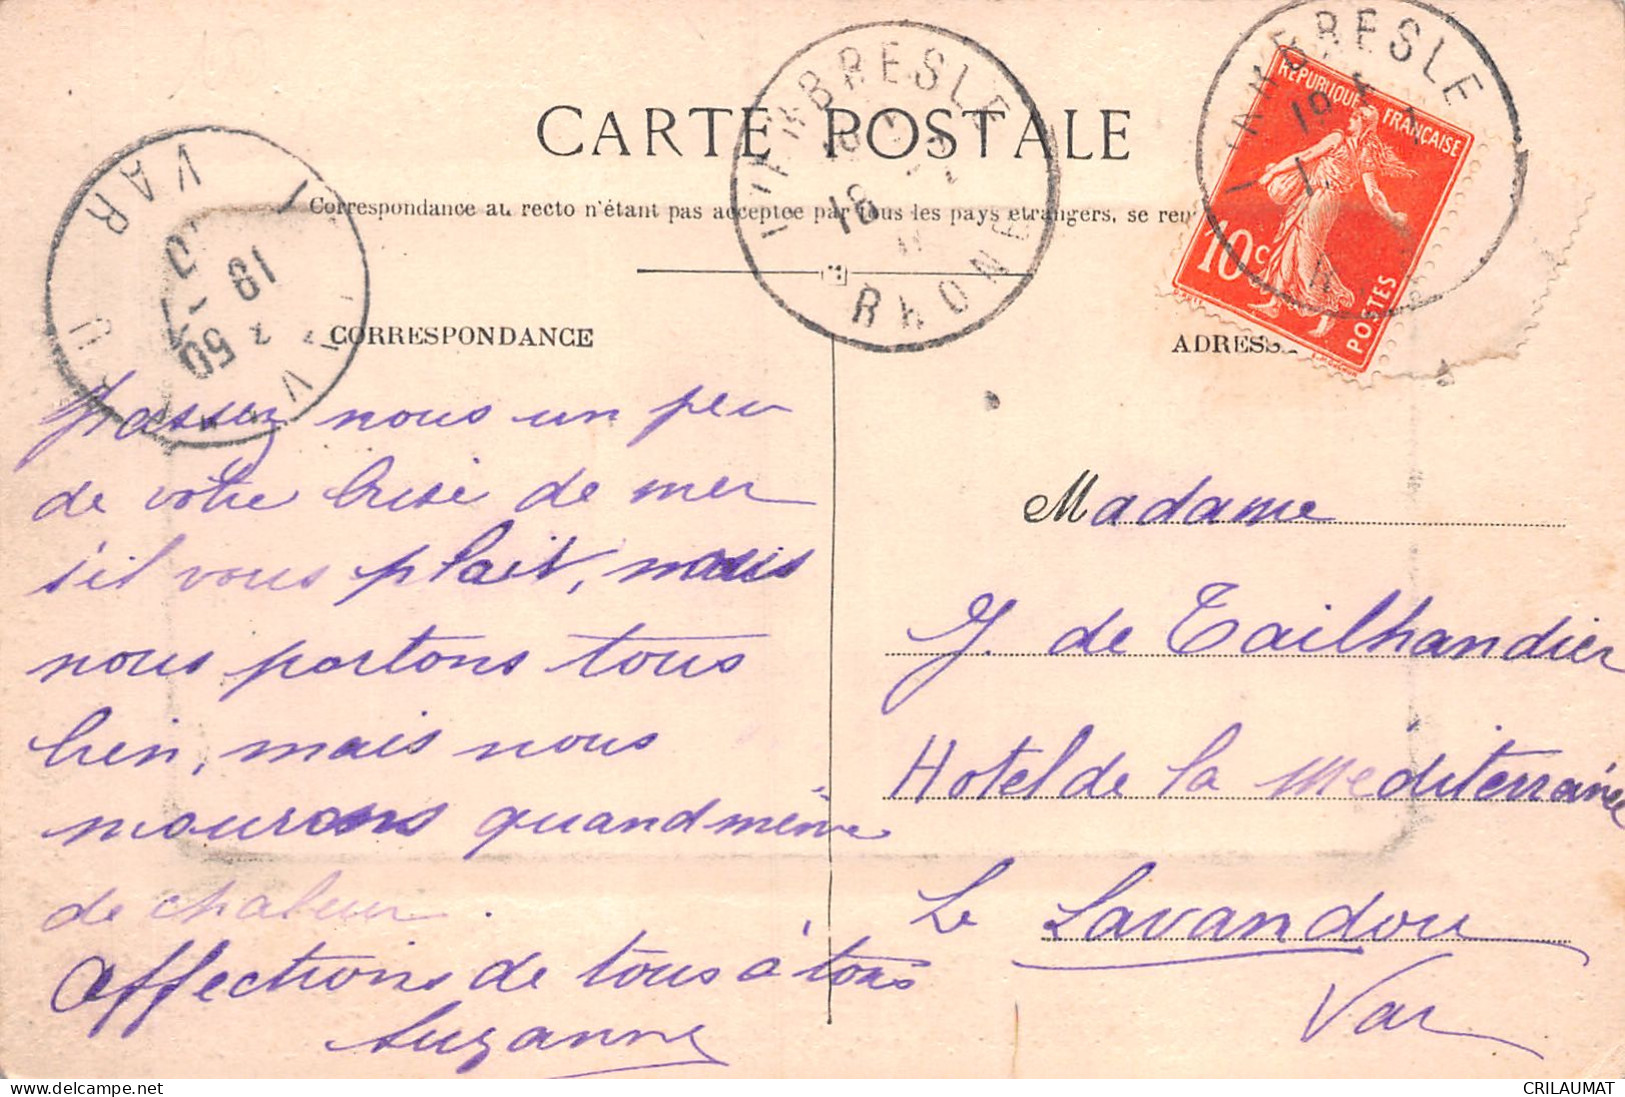 CARTE POSTALE
Correspondance au recto n'étant pas acceptée par tous les pays étrangers, se ren
CORRESPONDANCE
ADRESSE
RÉPUBLIQUE FRANÇAISE
10c
POSTES
BRESLE
RHONE
18
BRESLE
VAR
18
7 50
passez nous un peu
de votre brise de mer
s'il vous plait, mais
nous portons tous
bien, mais nous
mourons quand même
de chaleur.
Affections de tous à tous
Suzanne
Madame
J. de Tailhandier
Hotel de la Méditerranée
Le Lavandou
Var
delcampe.net
CRILAUMAT